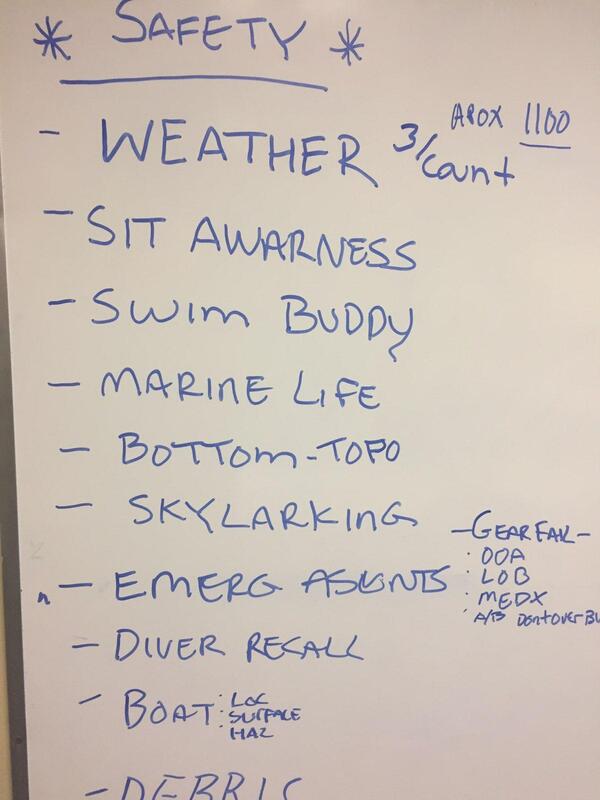 * SAFETY *
- WEATHER 3/count APOX 1100
- SIT AWARNESS
- SWIM BUDDY
- MARINE LIFE
- BOTTOM-TOPO
- SKYLARKING
- EMERG ASIGNTS
- GEAR FAIL -
: OOA
: LOB
: MEDX
: A/B Dont over Bu
- DIVER RECALL
- BOAT : LOC
: SURFACE
HAZ
- DEBRIS